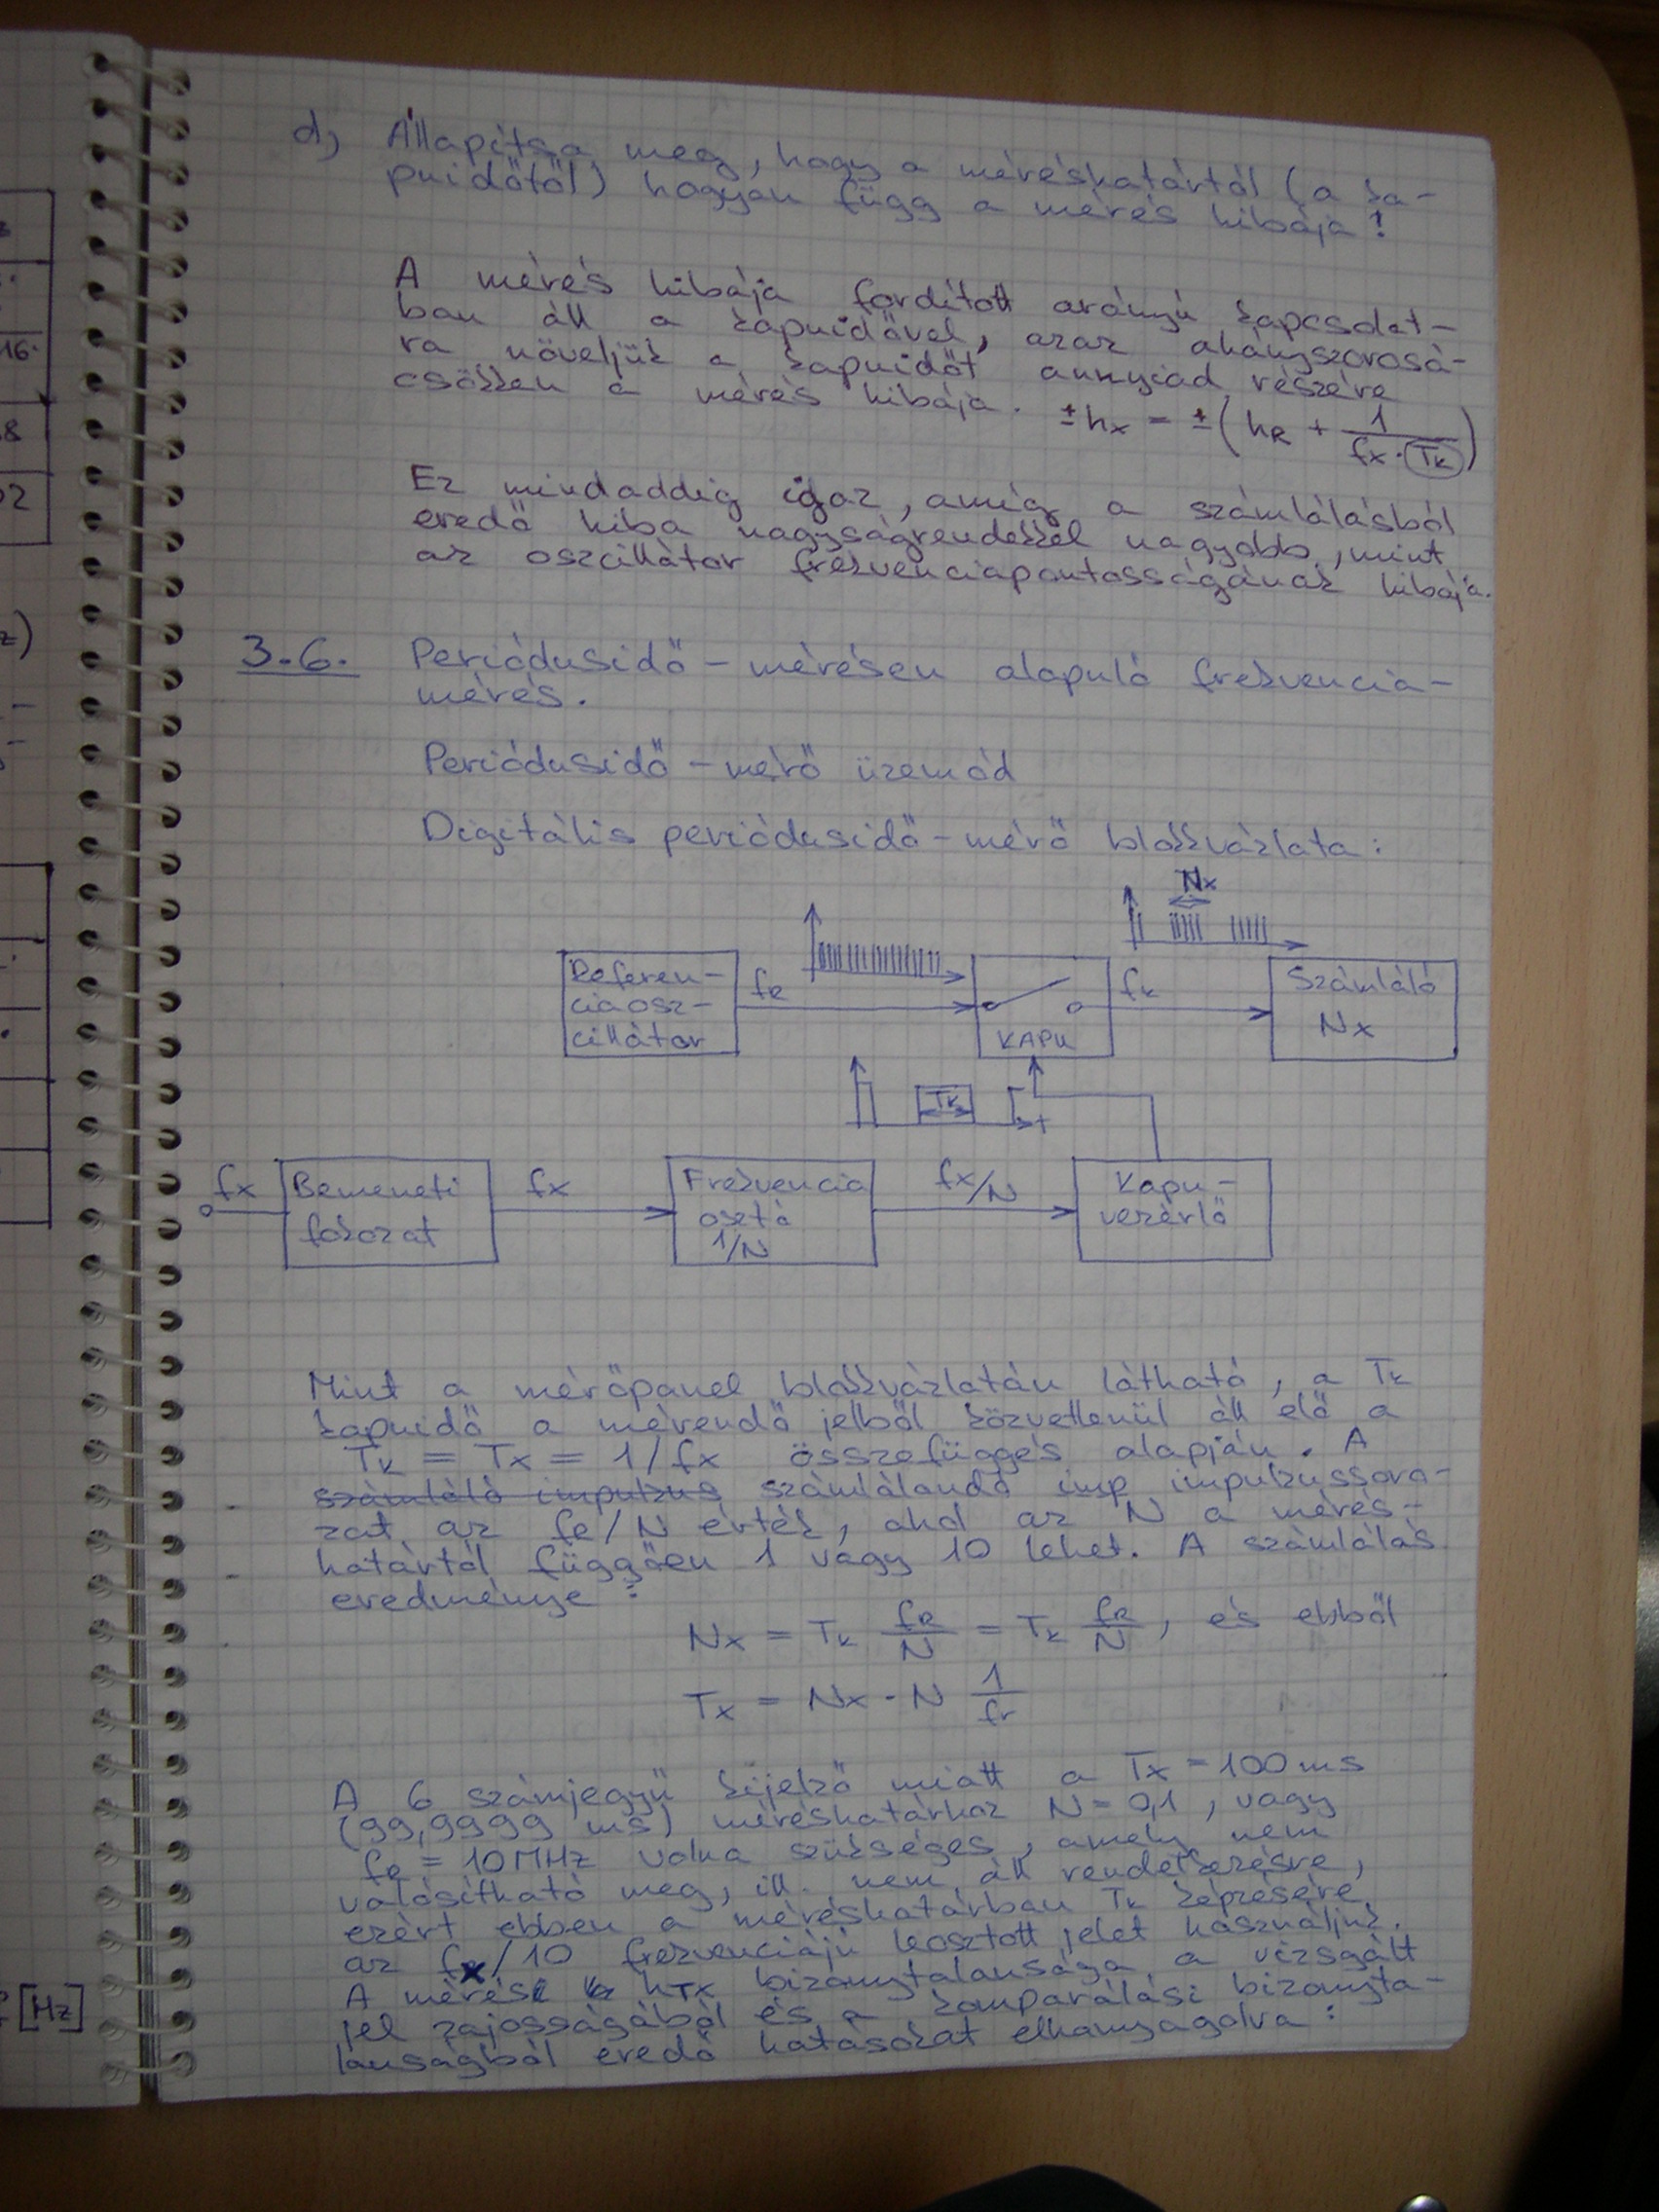 d) Állapítsa meg, hogy a méréshatártól (a ka-
puidőtől) hogyan függ a mérés hibája!
A mérés hibája fordított arányú kapcsolat-
ban áll a kapuidővel, azaz ahányszorosá-
ra növeljük a kapuidőt annyiad részére
csökken a mérés hibája. ±hx = ±(hR + 1/(fx·Tk))
Ez mindaddig igaz, amíg a számlálásból
eredő hiba nagyságrendekkel nagyobb, mint
az oszcillátor frekvenciapontosságának hibája.
3.6. Periódusidő-mérésen alapuló frekvencia-
mérés.
Periódusidő-mérő üzemód
Digitális periódusidő-mérő blokkvázlata:
Nx
Referen-
ciaosz-
cillátor
fR
KAPU
fk
Számláló
Nx
Tk
t
fx
Bemeneti
fokozat
fx
Frekvencia
osztó
1/N
fx/N
Kapu-
vezérlő
Mint a mérőpanel blokkvázlatán látható, a Tk
kapuidő a mérendő jelből közvetlenül áll elő a
Tk = Tx = 1/fx összefüggés alapján. A
számláló impulzus számlálandó imp impulzussoro-
zat az fR/N érték, ahol az N a mérés-
határtól függően 1 vagy 10 lehet. A számlálás
eredménye:
Nx = Tk fR/N = Tk fR/N, és ebből
Tx = Nx · N 1/fr
A 6 számjegyű kijelző miatt a Tx = 100 ms
(99,9999 ms) méréshatárhoz N = 0,1, vagy
fR = 10MHz volna szükséges, amely nem
valósítható meg, ill. nem áll rendelkezésre,
ezért ebben a méréshatárban Tk képzésére
az fx/10 frekvenciájú leosztott jelet használjuk.
A mérés hTx bizonytalansága a vizsgált
jel zajosságából és a komparálási bizonyta-
lanságból eredő hatásokat elhanyagolva:
16.
8
02
z)
[Hz]